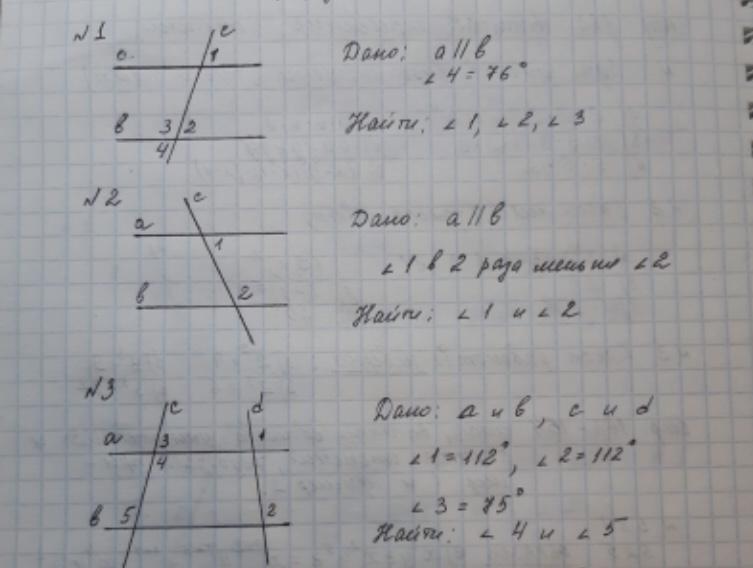 №1
c
a
1
Дано: a || в
∠4 = 76°
в 3 2
4
Найти: ∠1, ∠2, ∠3
№2
c
a
1
Дано: a || в
∠1 в 2 раза меньше ∠2
в 2
Найти: ∠1 и ∠2
№3
c d
a 3 1
4
Дано: a и в, c и d
∠1 = 112°, ∠2 = 112°
∠3 = 75°
в 5 2
Найти: ∠4 и ∠5